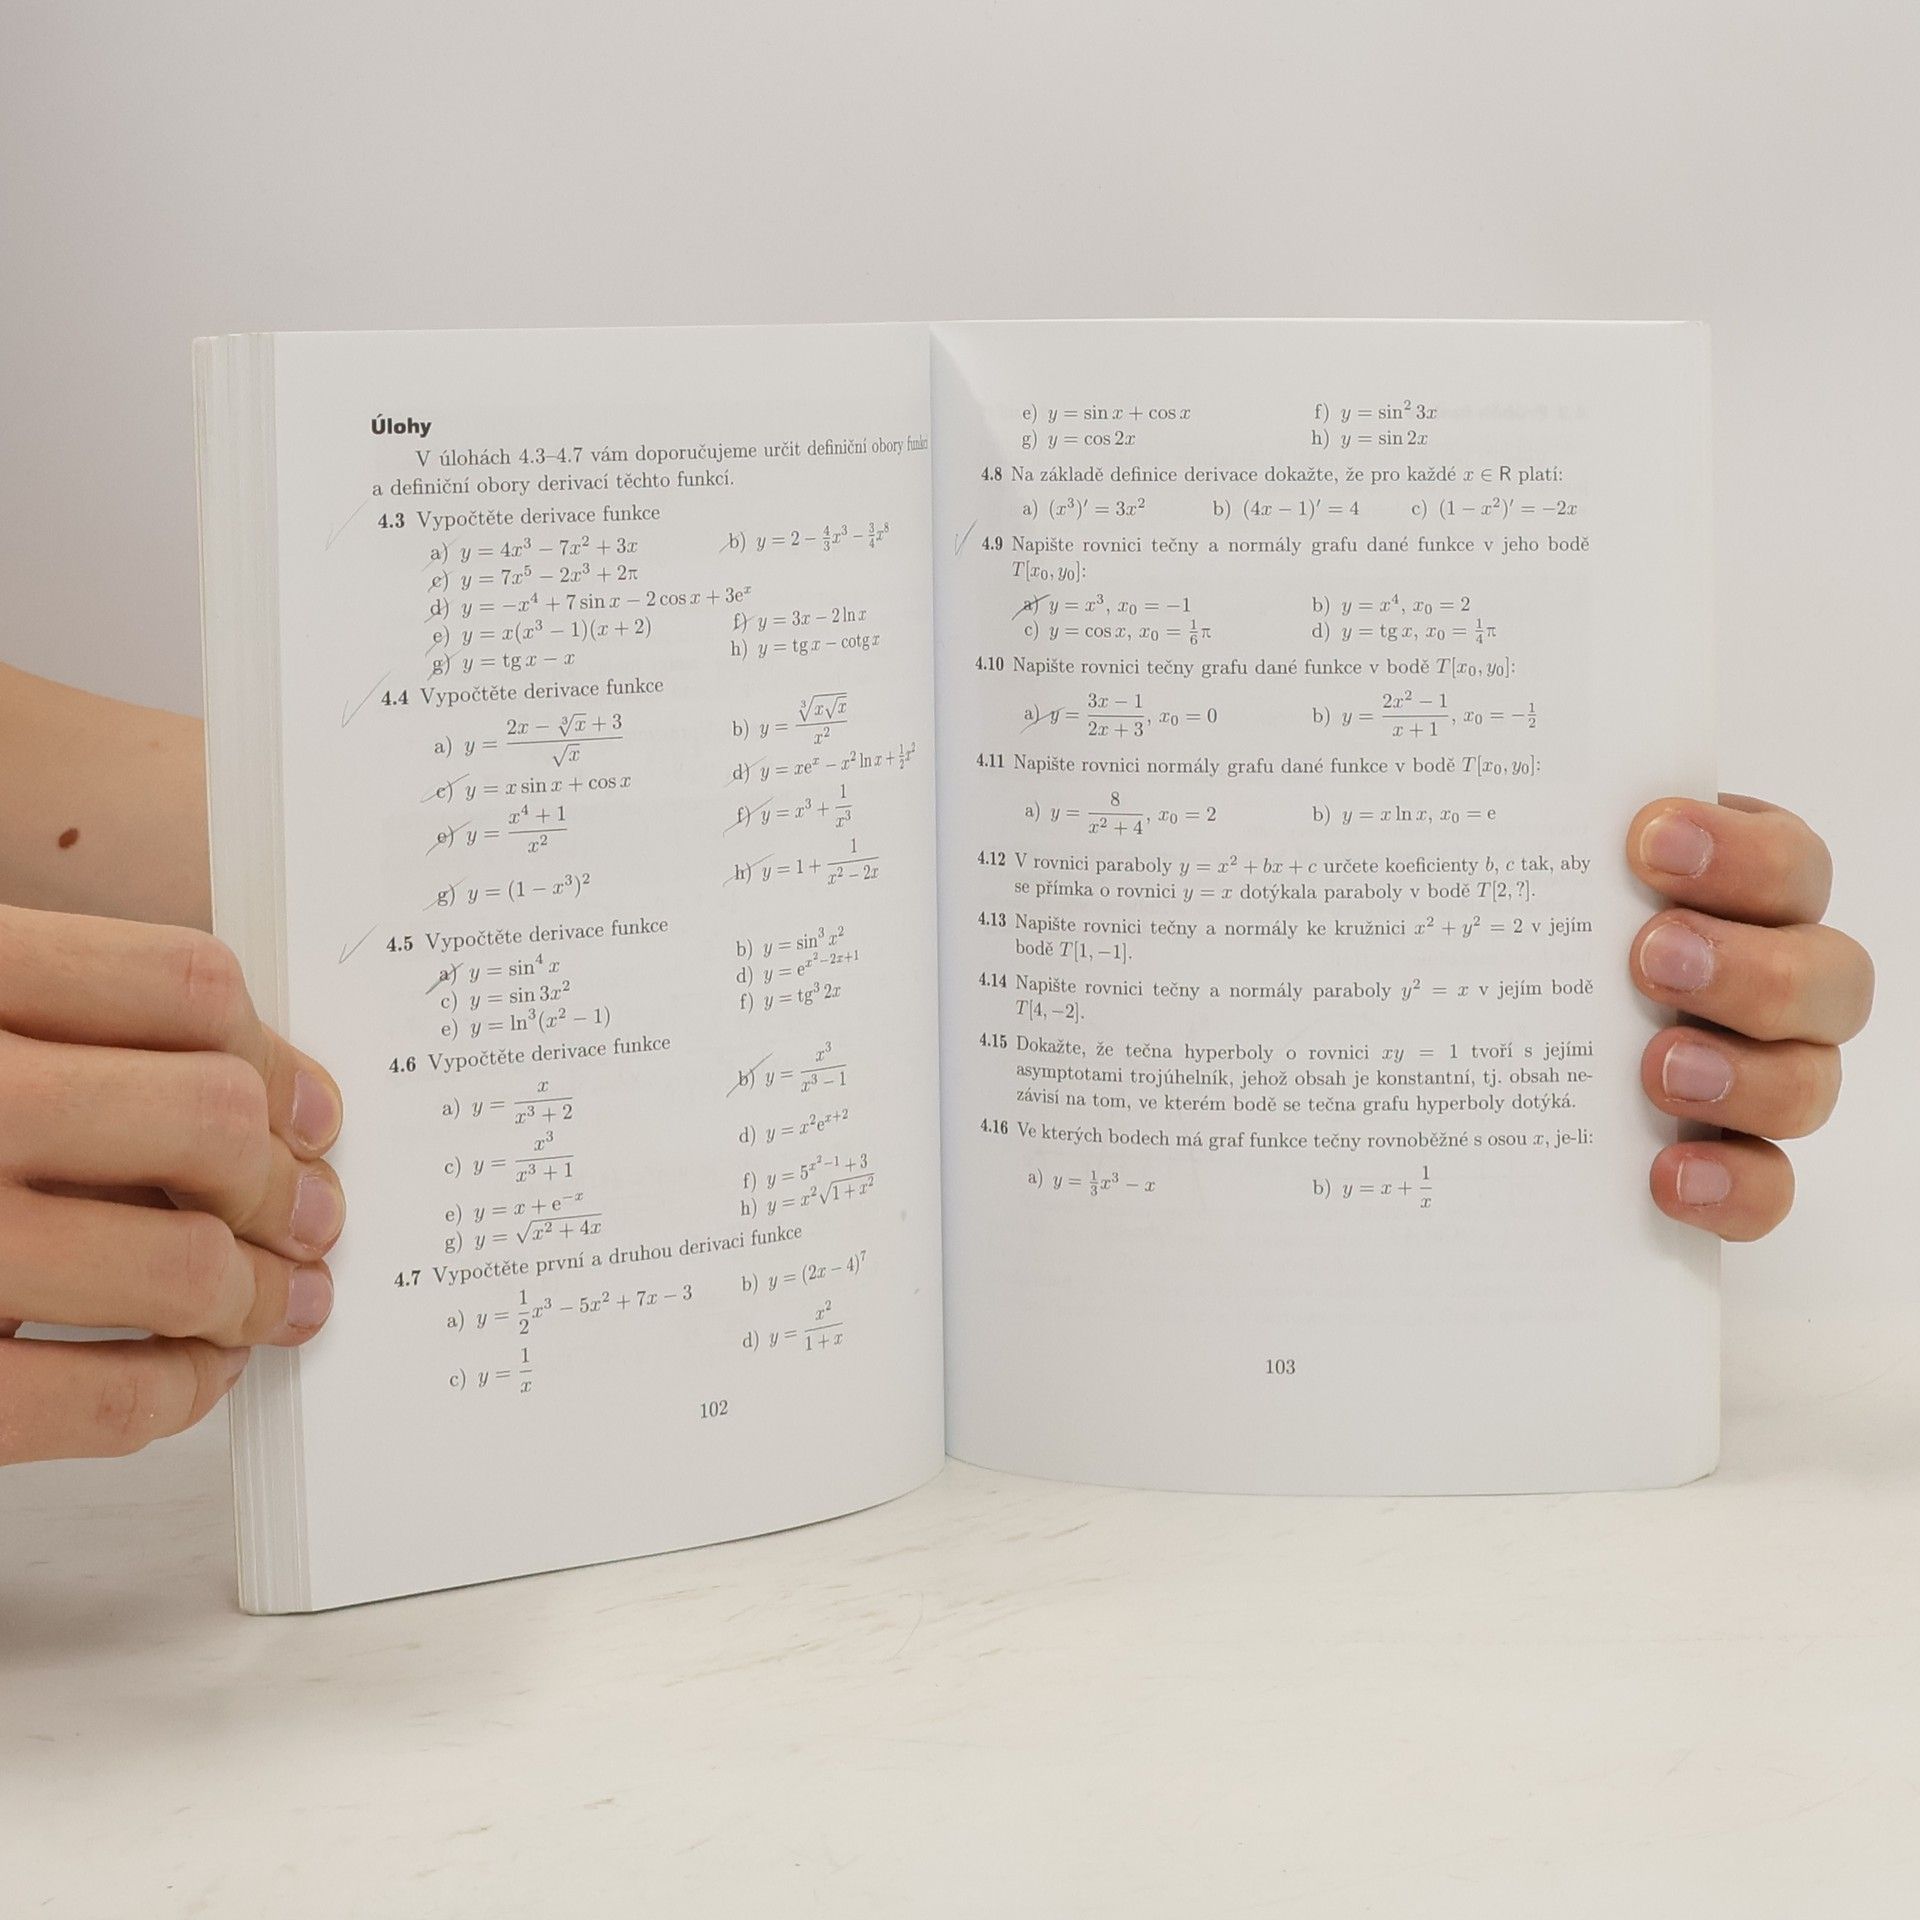 Úlohy
V úlohách 4.3–4.7 vám doporučujeme určit definiční obory funkcí
a definiční obory derivací těchto funkcí.
4.3 Vypočtěte derivace funkce
a) y = 4x³ − 7x² + 3x b) y = 2 − 4/3 x³ − 3/4 x⁸
c) y = 7x⁵ − 2x³ + 2π
d) y = −x⁴ + 7 sin x − 2 cos x + 3eˣ
e) y = x(x³ − 1)(x + 2) f) y = 3x − 2 ln x
g) y = tg x − x h) y = tg x − cotg x
4.4 Vypočtěte derivace funkce
a) y = (2x − ∛x + 3)/√x b) y = ∛(x√x)/x²
c) y = x sin x + cos x d) y = xeˣ − x² ln x + 1/2 x²
e) y = (x⁴ + 1)/x² f) y = x³ + 1/x³
g) y = (1 − x³)² h) y = 1 + 1/(x² − 2x)
4.5 Vypočtěte derivace funkce
a) y = sin⁴ x b) y = sin³ x²
c) y = sin 3x² d) y = e^(x²−2x+1)
e) y = ln³(x² − 1) f) y = tg³ 2x
4.6 Vypočtěte derivace funkce
a) y = x/(x³ + 2) b) y = x³/(x³ − 1)
c) y = x³/(x³ + 1) d) y = x²e^(x+2)
e) y = x + e^(−x) f) y = 5^(x²−1) + 3
g) y = √(x² + 4x) h) y = x²√(1 + x²)
4.7 Vypočtěte první a druhou derivaci funkce
a) y = 1/2 x³ − 5x² + 7x − 3 b) y = (2x − 4)⁷
c) y = 1/x d) y = x²/(1 + x)
102
e) y = sin x + cos x f) y = sin² 3x
g) y = cos 2x h) y = sin 2x
4.8 Na základě definice derivace dokažte, že pro každé x ∈ R platí:
a) (x³)′ = 3x² b) (4x − 1)′ = 4 c) (1 − x²)′ = −2x
4.9 Napište rovnici tečny a normály grafu dané funkce v jeho bodě
T[x₀, y₀]:
a) y = x³, x₀ = −1 b) y = x⁴, x₀ = 2
c) y = cos x, x₀ = 1/6 π d) y = tg x, x₀ = 1/4 π
4.10 Napište rovnici tečny grafu dané funkce v bodě T[x₀, y₀]:
a) y = (3x − 1)/(2x + 3), x₀ = 0 b) y = (2x² − 1)/(x + 1), x₀ = −1/2
4.11 Napište rovnici normály grafu dané funkce v bodě T[x₀, y₀]:
a) y = 8/(x² + 4), x₀ = 2 b) y = x ln x, x₀ = e
4.12 V rovnici paraboly y = x² + bx + c určete koeficienty b, c tak, aby
se přímka o rovnici y = x dotýkala paraboly v bodě T[2, ?].
4.13 Napište rovnici tečny a normály ke kružnici x² + y² = 2 v jejím
bodě T[1, −1].
4.14 Napište rovnici tečny a normály paraboly y² = x v jejím bodě
T[4, −2].
4.15 Dokažte, že tečna hyperboly o rovnici xy = 1 tvoří s jejími
asymptotami trojúhelník, jehož obsah je konstantní, tj. obsah ne-
závisí na tom, ve kterém bodě se tečna grafu hyperboly dotýká.
4.16 Ve kterých bodech má graf funkce tečny rovnoběžné s osou x, je-li:
a) y = 1/3 x³ − x b) y = x + 1/x
103